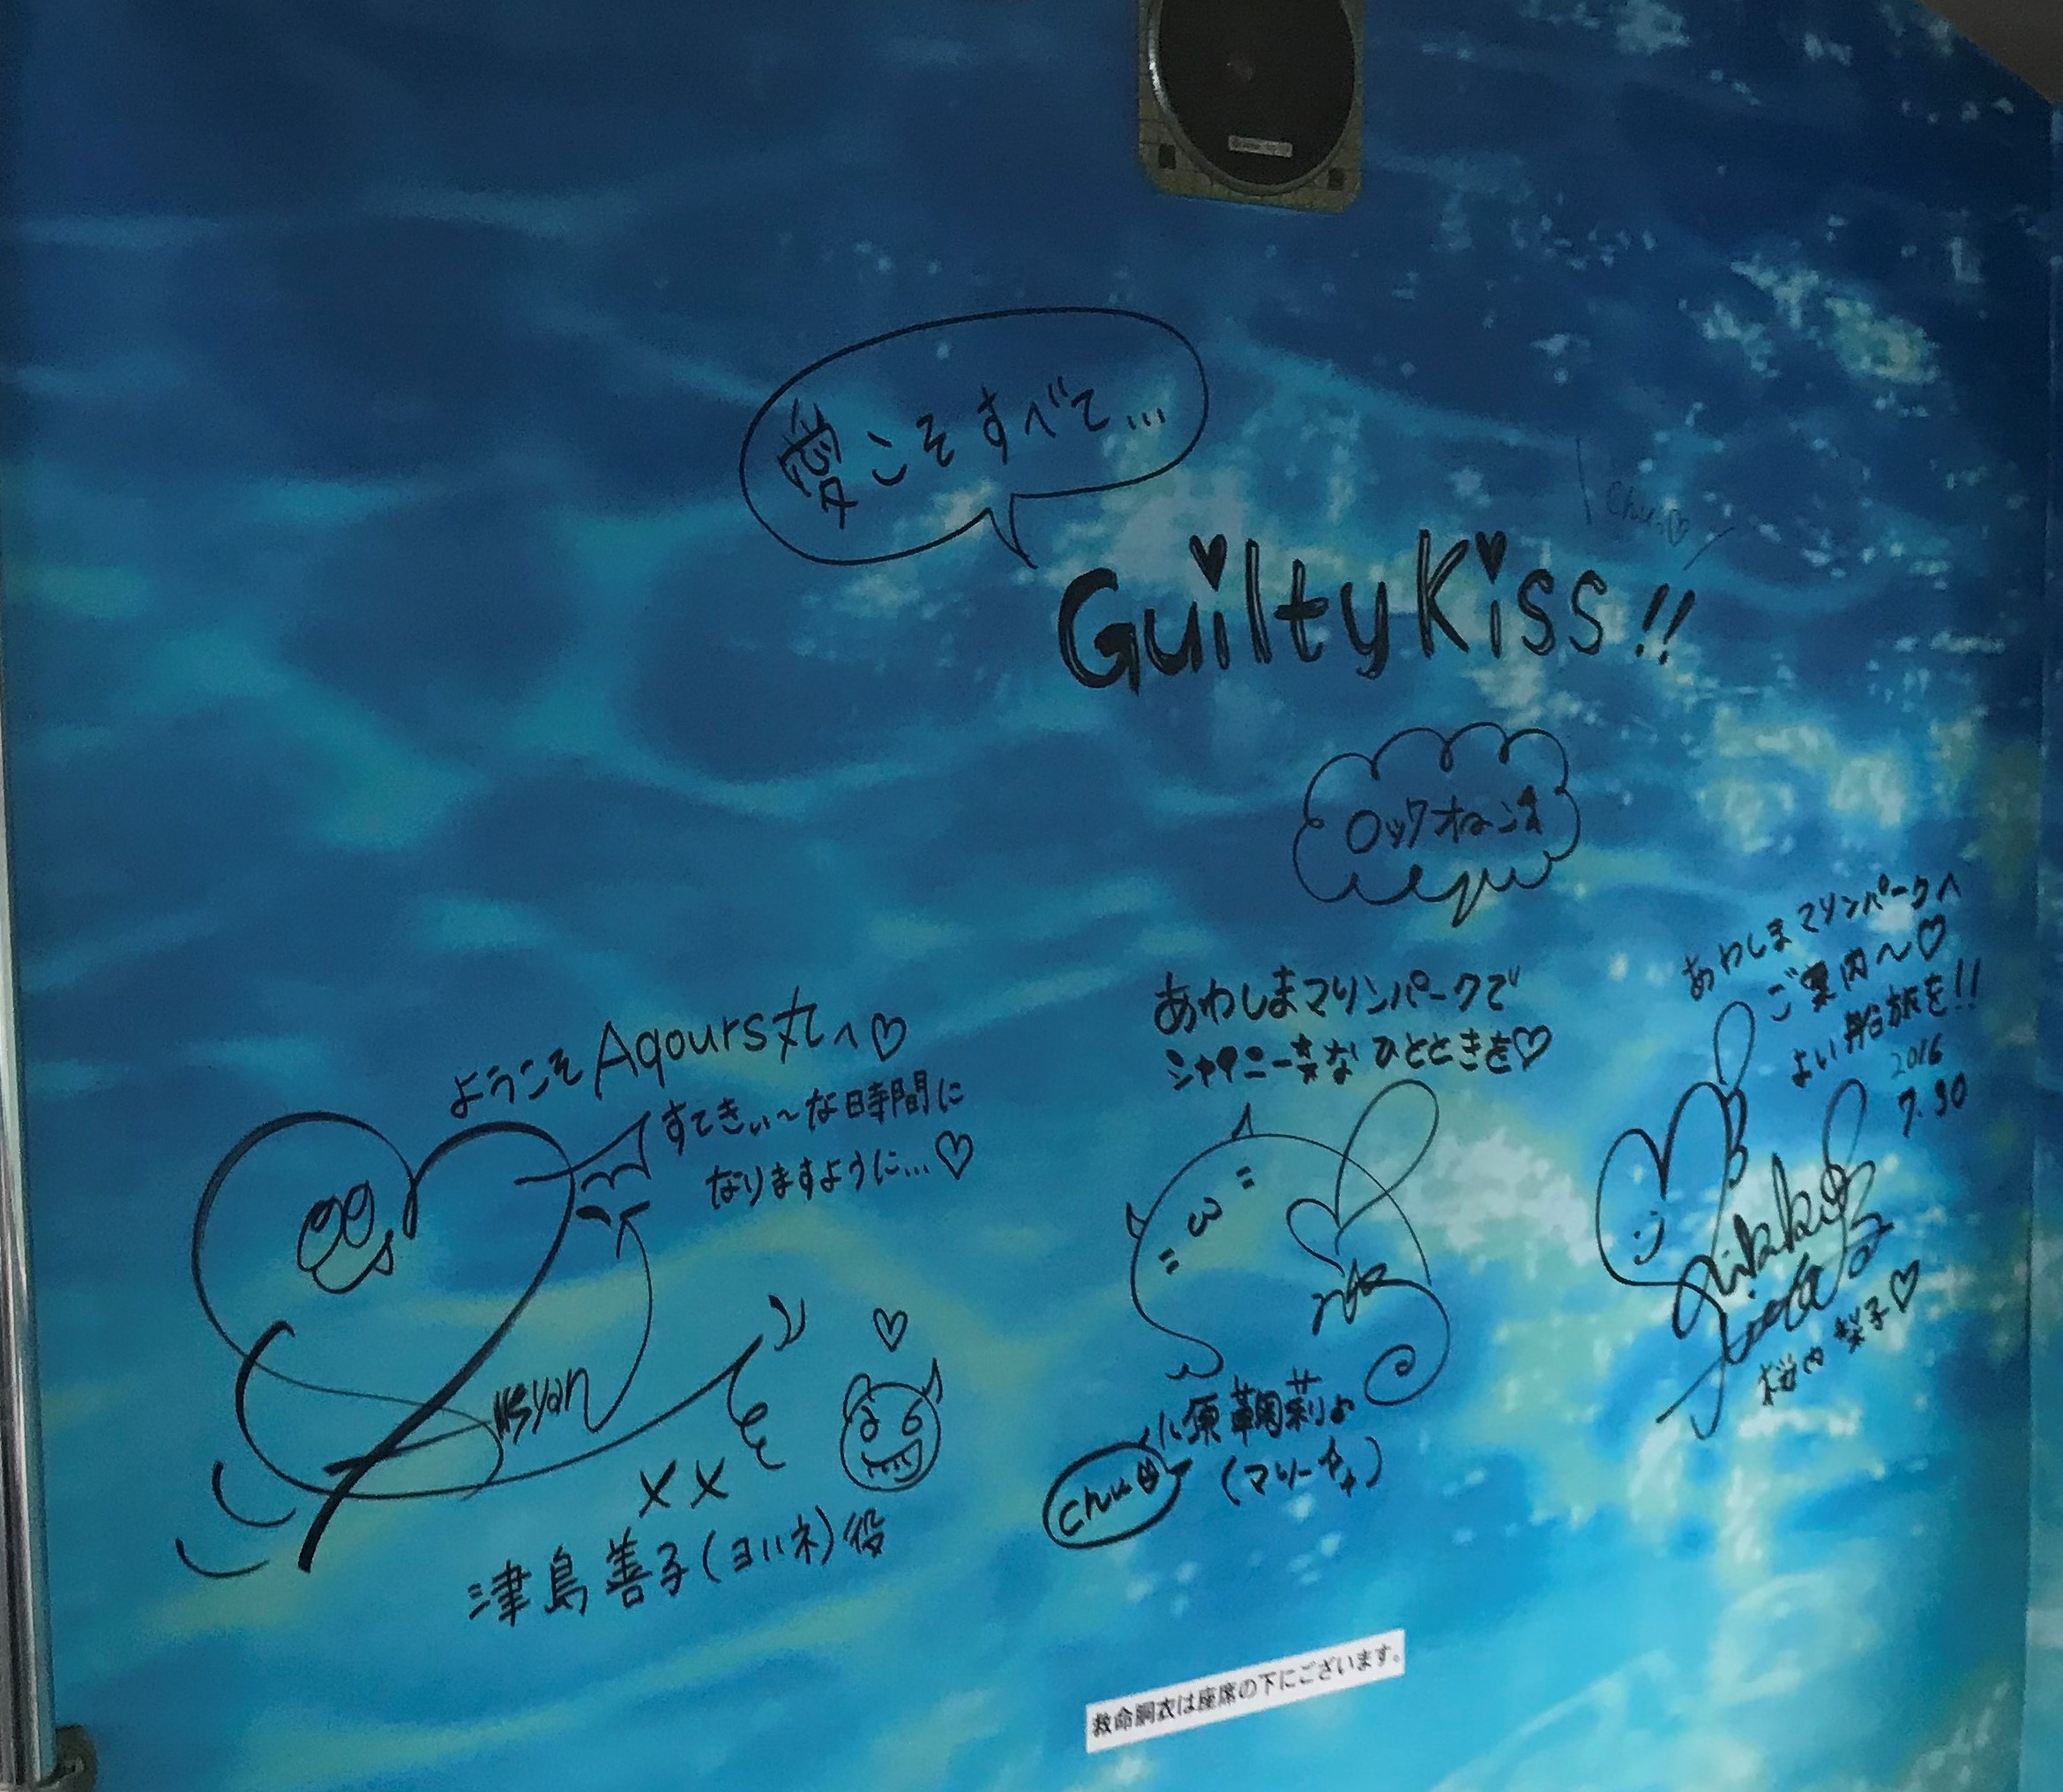 愛こそすべて…
Chu♡
GuiltyKiss!!
ようこそAqours丸へ♡
すてきぃ〜な時間に
なりますように…♡
津島善子(ヨハネ)役
あわしまマリンパークで
シャイニー☆なひとときを♡
小原鞠莉よ
chu
あわしまマリンパークへ
ご案内〜♡
よい船旅を!!
2016
7.30
Rikako
Aida
桜内梨子♡
救命胴衣は座席の下にございます。